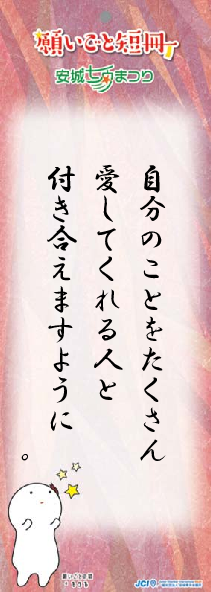 願いごと短冊
安城七夕まつり
自分のことをたくさん
愛してくれる人と
付き合えますように
。
願いごと短冊
JCI